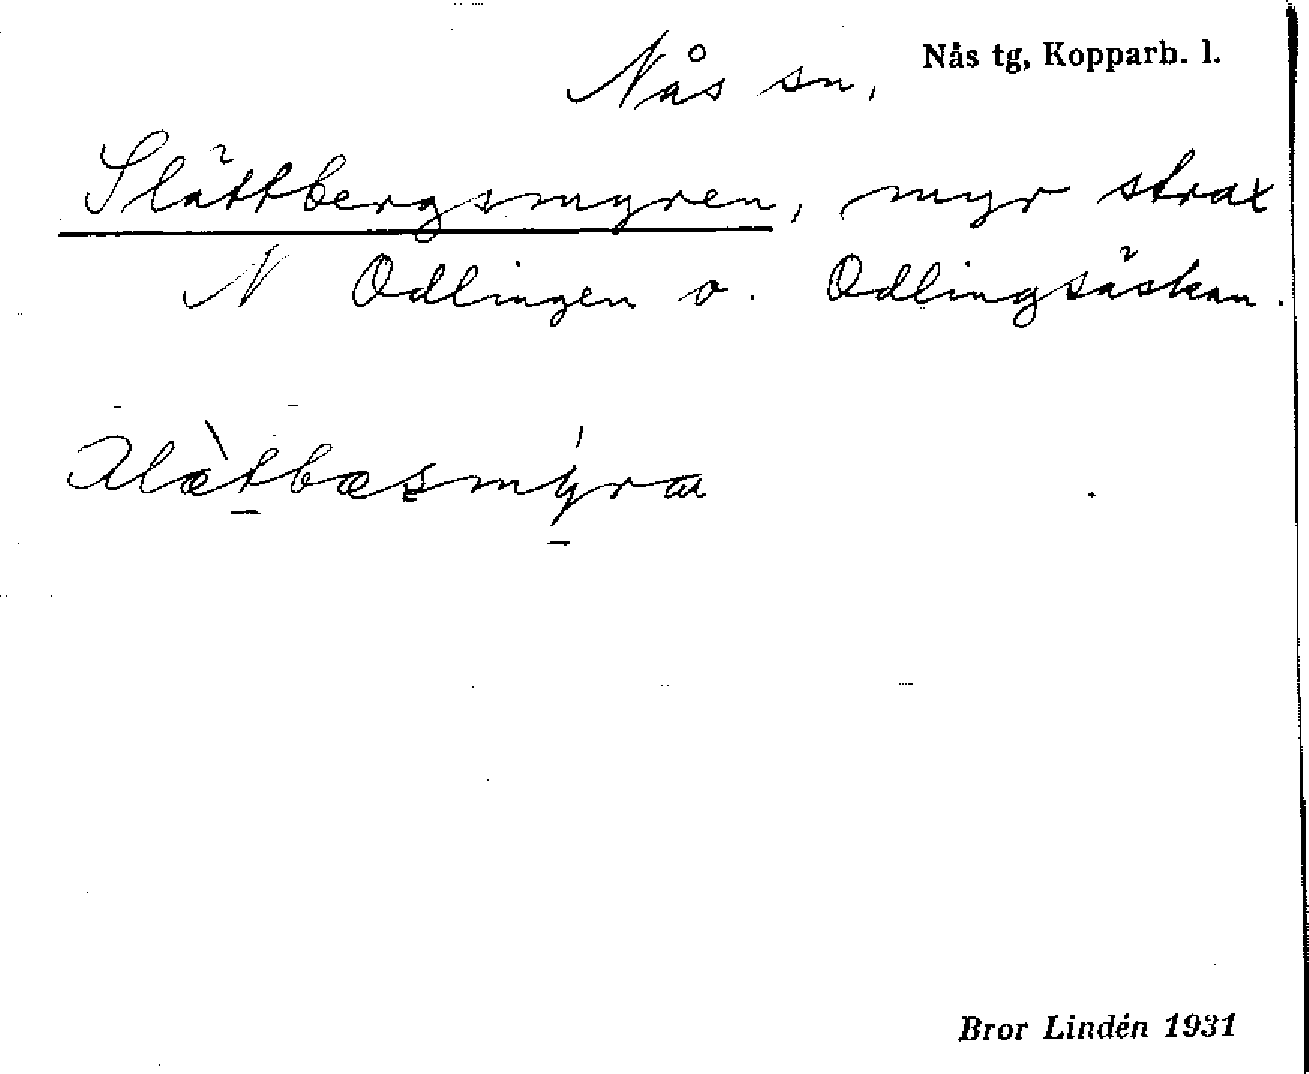 Nås sn,
Nås tg, Kopparb. l.
Slättbergsmyren, myr strax
N Odlingen o. Odlingsåskan.
Bror Lindén 1931